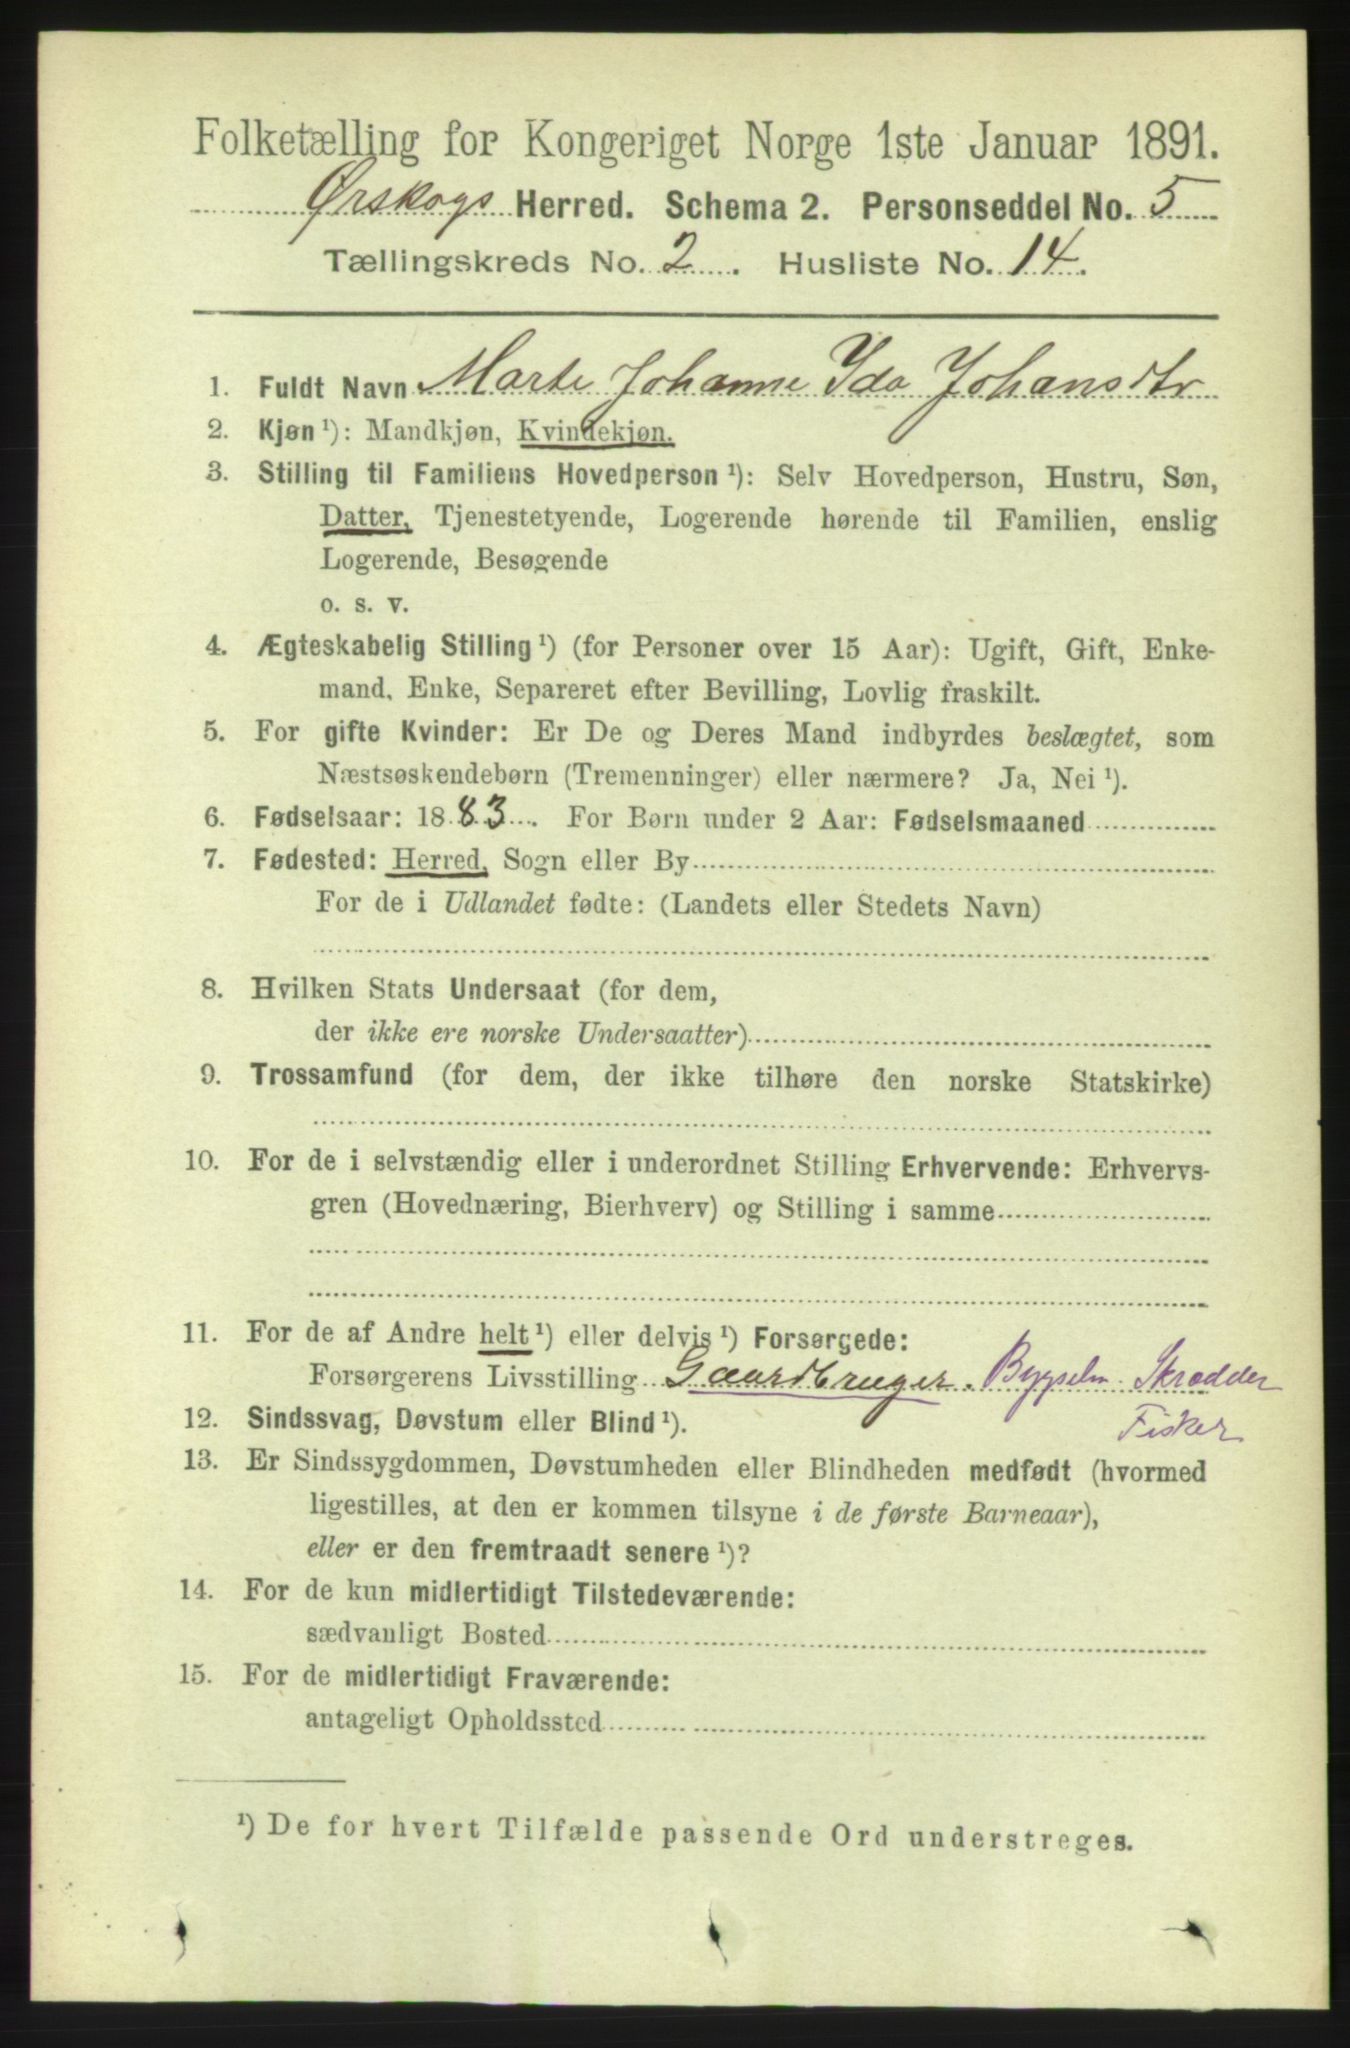 Folketælling for Kongeriget Norge 1ste Januar 1891.
Ørskogs Herred. Schema 2. Personseddel No. 5
Tællingskreds No. 2. Husliste No. 14.
1. Fuldt Navn Marte Johanne Ida Johansdtr
2. Kjøn ¹): Mandkjøn, Kvindekjøn.
3. Stilling til Familiens Hovedperson ¹): Selv Hovedperson, Hustru, Søn,
Datter, Tjenestetyende, Logerende hørende til Familien, enslig
Logerende, Besøgende
o. s. v.
4. Ægteskabelig Stilling ¹) (for Personer over 15 Aar): Ugift, Gift, Enke-
mand, Enke, Separeret efter Bevilling, Lovlig fraskilt.
5. For gifte Kvinder: Er De og Deres Mand indbyrdes beslægtet, som
Næstsøskendebørn (Tremenninger) eller nærmere? Ja, Nei ¹).
6. Fødselsaar: 1883. For Børn under 2 Aar: Fødselsmaaned
7. Fødested: Herred, Sogn eller By
For de i Udlandet fødte: (Landets eller Stedets Navn)
8. Hvilken Stats Undersaat (for dem,
der ikke ere norske Undersaatter)
9. Trossamfund (for dem, der ikke tilhøre den norske Statskirke)
10. For de i selvstændig eller i underordnet Stilling Erhvervende: Erhvervs-
gren (Hovednæring, Bierhverv) og Stilling i samme
11. For de af Andre helt ¹) eller delvis ¹) Forsørgede:
Forsørgerens Livsstilling Gaardbruger. Bygselm. Skrædder
Fisker
12. Sindssvag, Døvstum eller Blind ¹).
13. Er Sindssygdommen, Døvstumheden eller Blindheden medfødt (hvormed
ligestilles, at den er kommen tilsyne i de første Barneaar),
eller er den fremtraadt senere ¹)?
14. For de kun midlertidigt Tilstedeværende:
sædvanligt Bosted
15. For de midlertidigt Fraværende:
antageligt Opholdssted
¹) De for hvert Tilfælde passende Ord understreges.